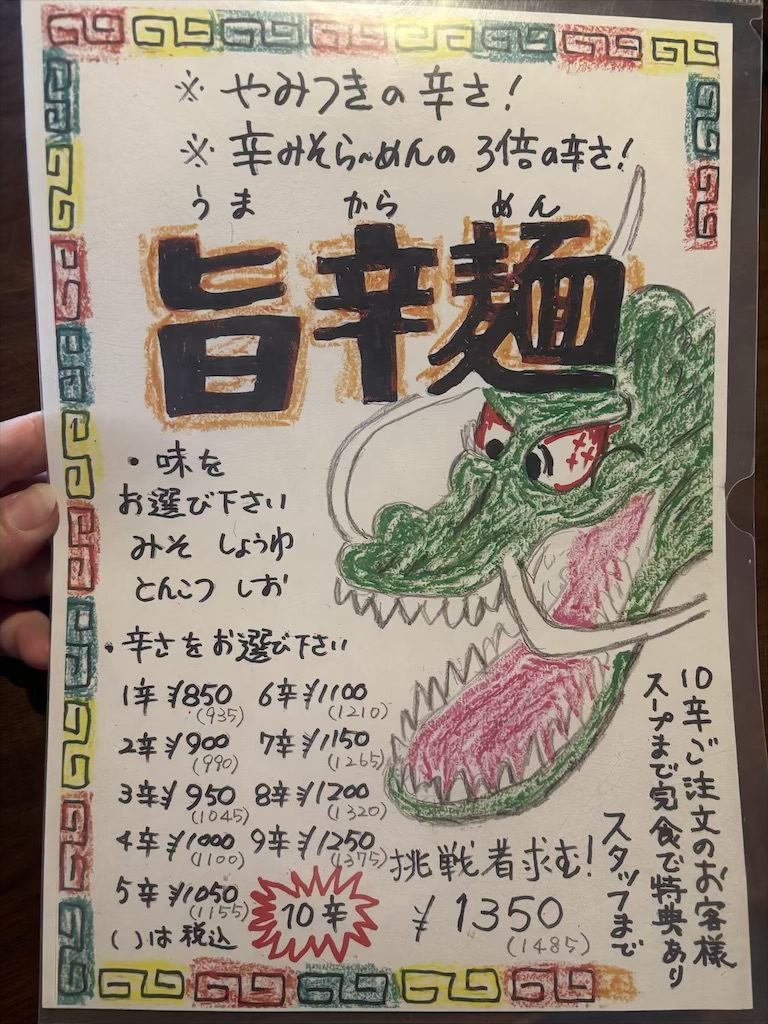 ※ やみつきの辛さ!
※ 辛みそら〜めんの3倍の辛さ!
うま から めん
旨辛麺
・味を
お選び下さい
みそ しょうゆ
とんこつ しお
・辛さをお選び下さい
1辛 ¥850 6辛 ¥1100
(935) (1210)
2辛 ¥900 7辛 ¥1150
(990) (1265)
3辛 ¥950 8辛 ¥1200
(1045) (1320)
4辛 ¥1000 9辛 ¥1250
(1100) (1375)
5辛 ¥1050
(1155)
( )は税込
10辛
挑戦者求む!
¥1350
(1485)
10辛ご注文のお客様
スープまで完食で特典あり
スタッフまで